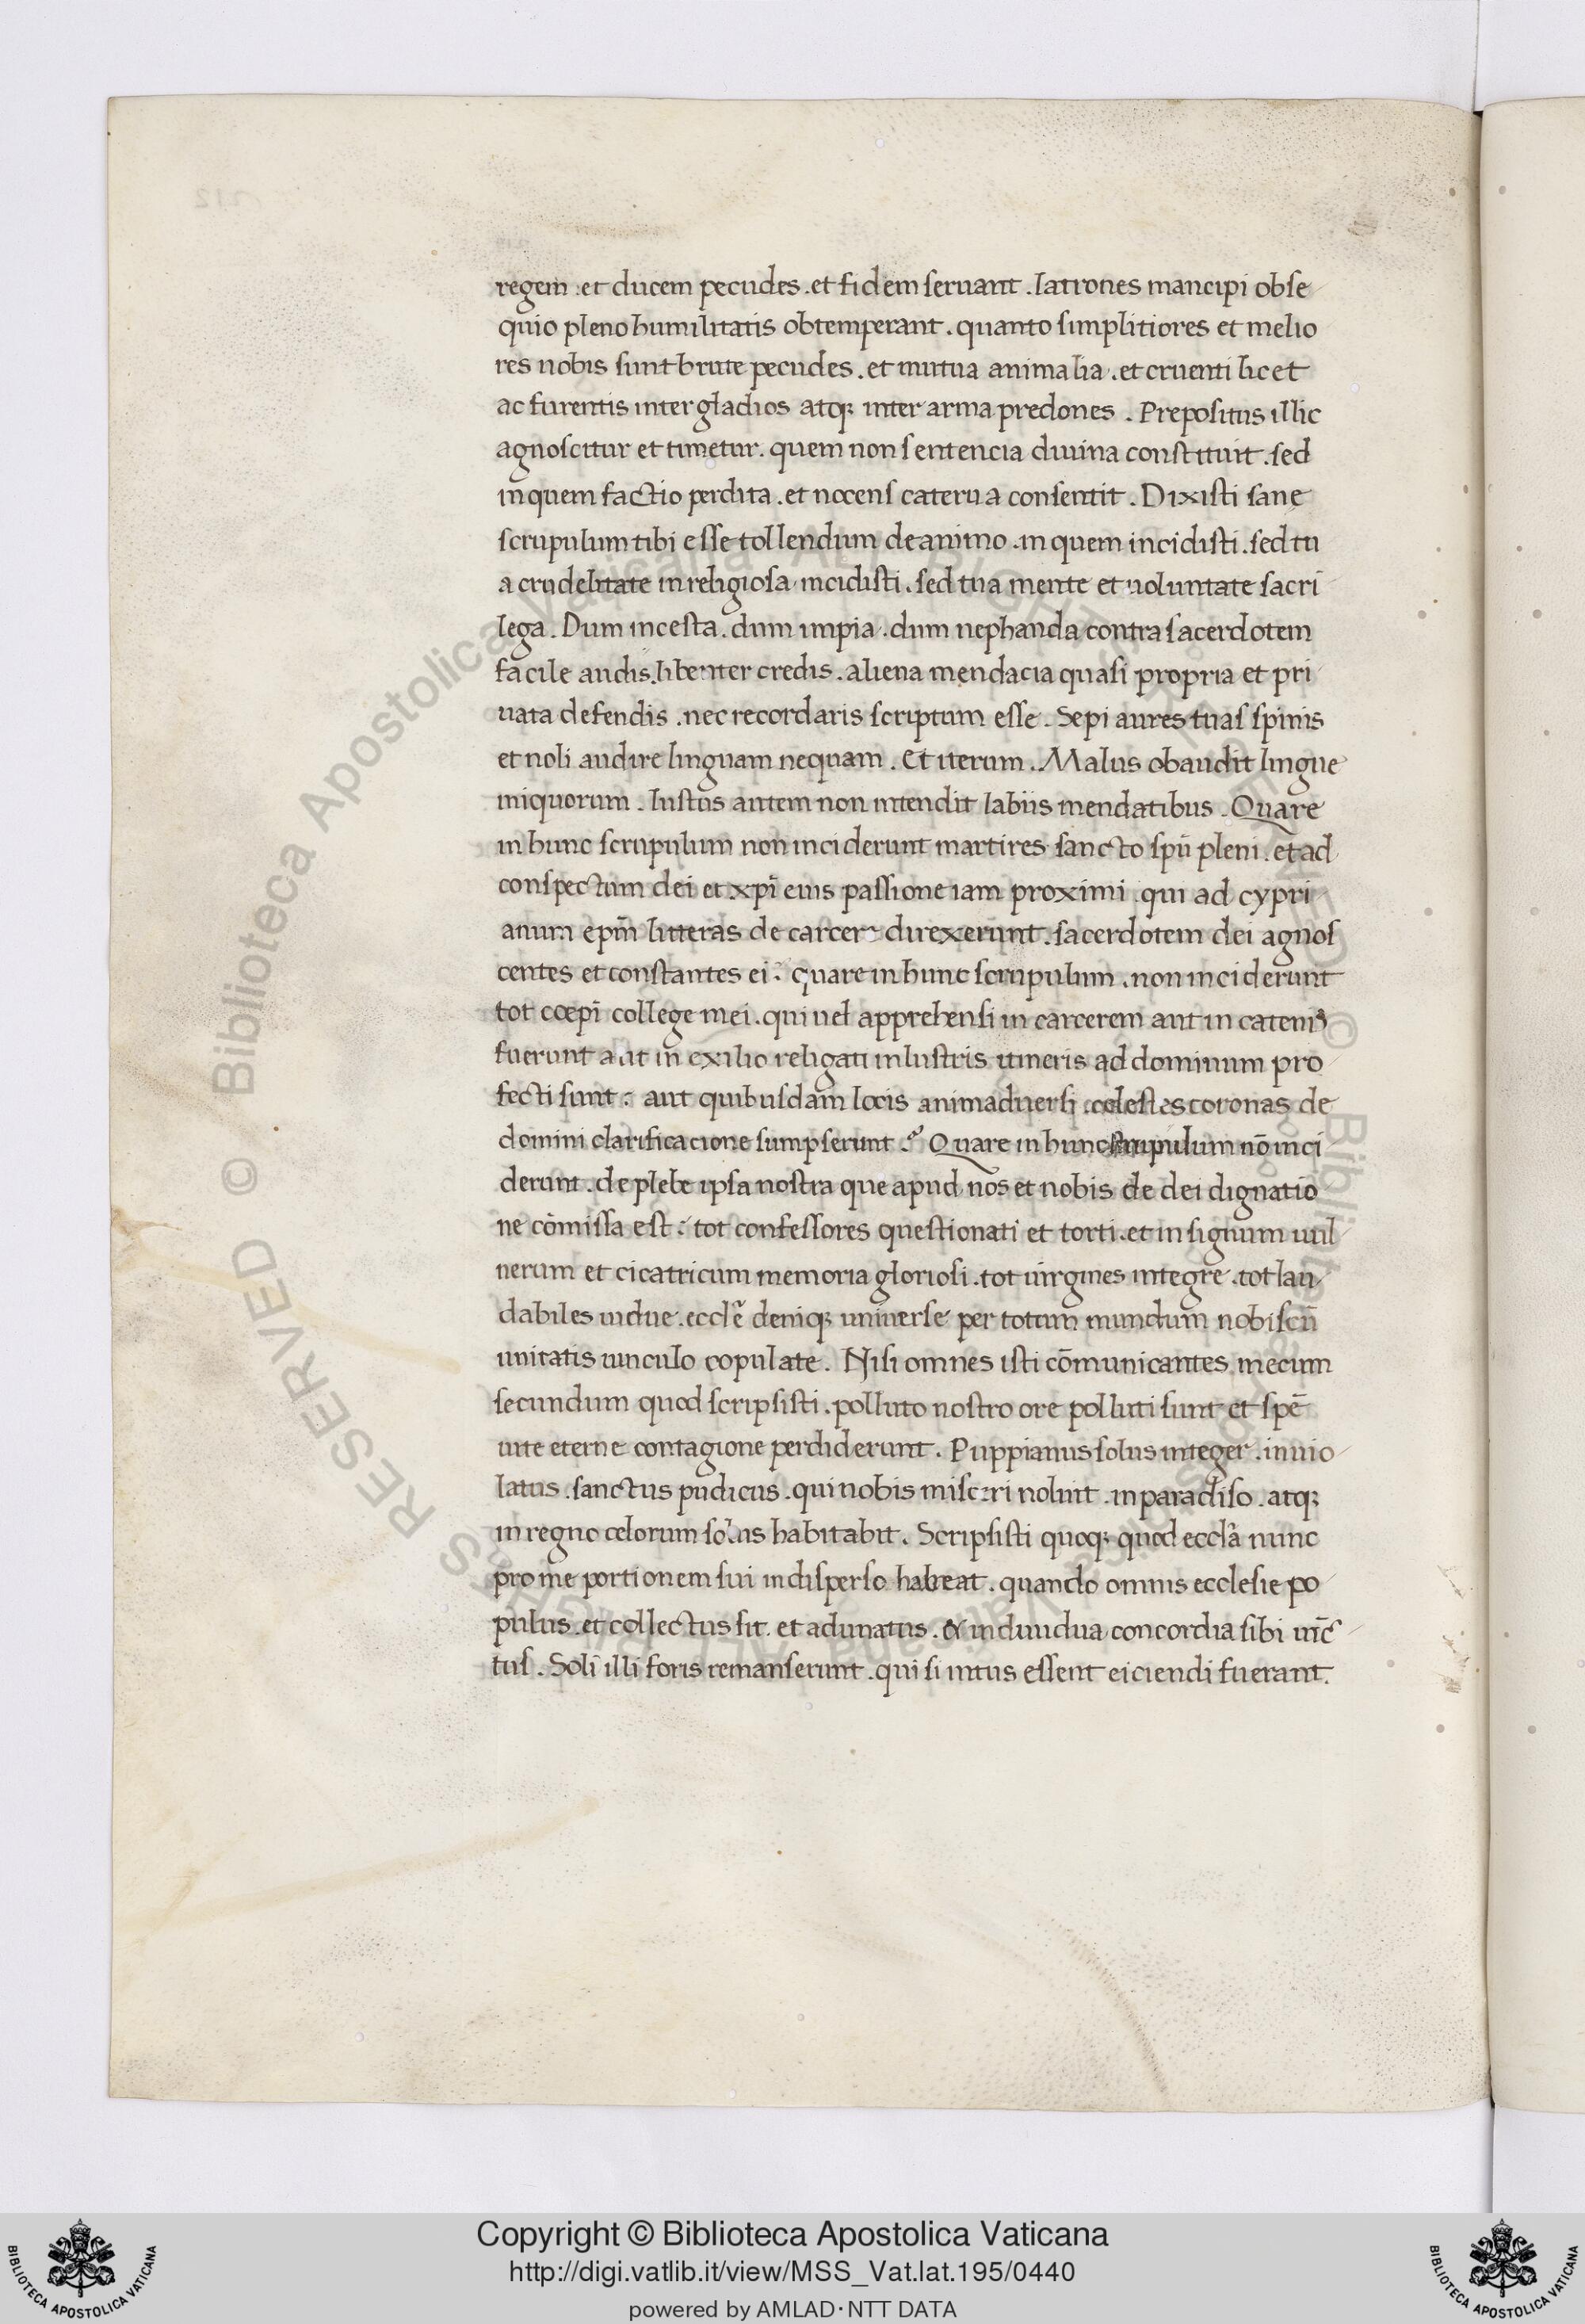 regem . et ducem pecudes . et fidem seruant . latrones mancipi obse
quio pleno humilitatis obtemperant . quanto simplitiores et melio
res nobis sunt brute pecudes . et mutua animalia . et cruenti licet
ac furentis inter gladios atq; inter arma predones . Prepositus illic
agnoscitur et timetur . quem non sentencia diuina constituit . sed
in quem factio perdita . et nocens caterua consentit . Dixisti sane
scrupulum tibi esse tollendum de animo . in quem incidisti . sed tu
a crudelitate inreligiosa incidisti . sed tua mente et uoluntate sacri
lega . Dum incesta . dum impia . dum nephanda contra sacerdotem
facile audis . libenter credis . aliena mendacia quasi propria et pri
uata defendis . nec recordaris scriptum esse . Sepi aures tuas spinis
et noli audire linguam nequam . Et iterum . Malus obaudit lingue
iniquorum . Iustus autem non intendit labiis mendatibus . Quare
in hunc scrupulum non inciderunt martires sancto spū pleni . et ad
conspectum dei et xpī eius passione iam proximi . qui ad cypri
anum epm̄ litteras de carcere direxerunt . sacerdotem dei agnos
centes et constantes ei . quare in hunc scrupulum . non inciderunt
tot coepī college mei . qui uel apprehensi in carcerem aut in catenis
fuerunt aut in exilio religati inlustris itineris ad dominum pro
fecti sunt : aut quibusdam locis animaduersi . celestes coronas de
domini clarificacione sumpserunt . Quare in hunc scrupulum nō inci
derunt . de plebe ipsa nostra que apud nos et nobis de dei dignatio
ne cōmissa est : tot confessores questionati et torti . et insignum uul
nerum et cicatricum memoria gloriosi . tot uirgines integre . tot lau
dabiles uidue . ecclē deniq; uniuerse per totum mundum nobiscū
unitatis uinculo copulate . Nisi omnes isti cōmunicantes mecum
secundum quod scripsisti . polluto nostro ore polluti sunt et spē
uite eterne contagione perdiderunt . Puppianus solus integer . inuio
latus . sanctus pudicus . qui nobis misceri noluit . in paradiso . atq;
in regno celorum solus habitabit . Scripsisti quoq; quod ecclā nunc
pro me portionem sui in disperso habeat . quando omnis ecclesie po
pulus . et collectus sit . et adunatus . & indiuidua concordia sibi uīc
tus . Soli illi foris remanserunt . qui si intus essent eiciendi fuerant .
© Biblioteca Apostolica Vaticana ALL RIGHTS RESERVED
Copyright © Biblioteca Apostolica Vaticana
http://digi.vatlib.it/view/MSS_Vat.lat.195/0440
powered by AMLAD・NTT DATA
BIBLIOTECA APOSTOLICA VATICANA
BIBLIOTECA APOSTOLICA VATICANA